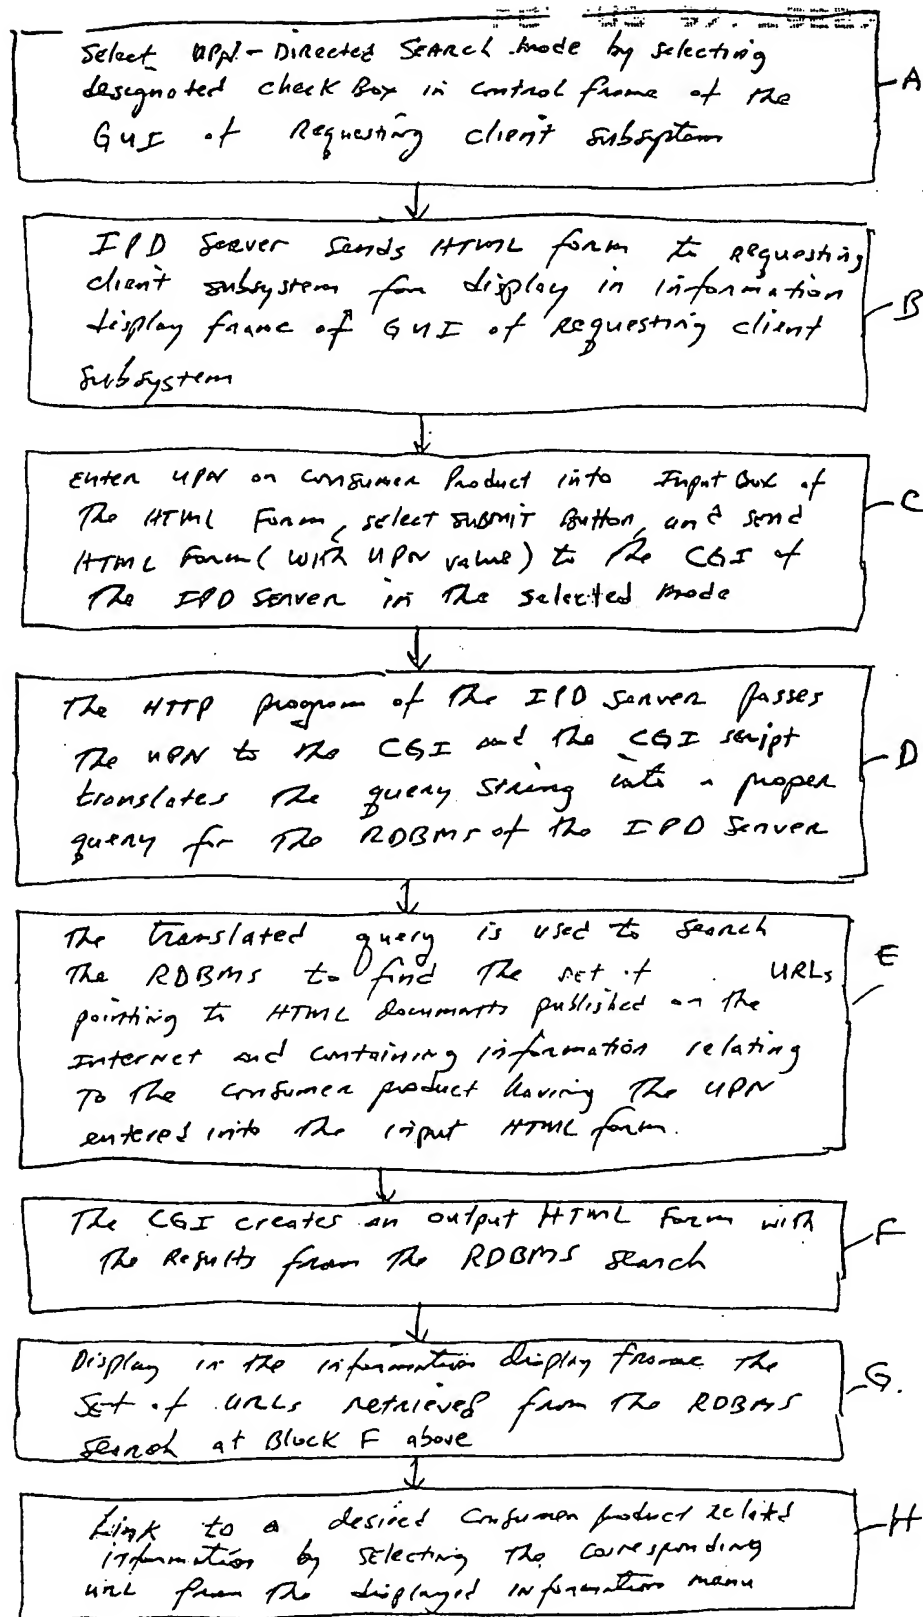 Select UPN-Directed Search mode by selecting
designated check Box in control frame of the
GUI of Requesting client subsystem
A
IPD Server Sends HTML form to requesting
client subsystem for display in information
display frame of GUI of Requesting client
subsystem
B
Enter UPN on Consumer Product into Input Box of
The HTML Form, select SUBMIT Button, and send
HTML Form (with UPN value) to the CGI of
The IPD Server in the selected mode
C
The HTTP program of the IPD Server passes
The UPN to the CGI and the CGI script
translates the query string into a proper
query for the RDBMS of the IPD Server
D
The translated query is used to search
The RDBMS to find the set of URLs
pointing to HTML documents published on the
Internet and containing information relating
To the consumer product having the UPN
entered into the input HTML form.
E
The CGI creates an output HTML Form with
The Results from the RDBMS search
F
Display in the information display frame the
Set of URLs retrieved from the RDBMS
Search at Block F above
G.
Link to a desired Consumer product related
information by selecting the corresponding
URL from the displayed information menu
H